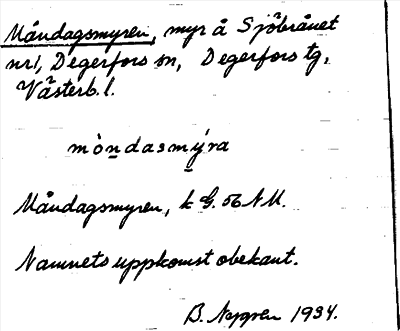 Måndagsmyren, myr å Sjöbrånet
nr1, Degerfors sn, Degerfors tg,
Västerb. l.
mòndasmýra
Måndagsmyren, k G. 56 N.M.
Namnets uppkomst obekant.
B. Nygren 1934.